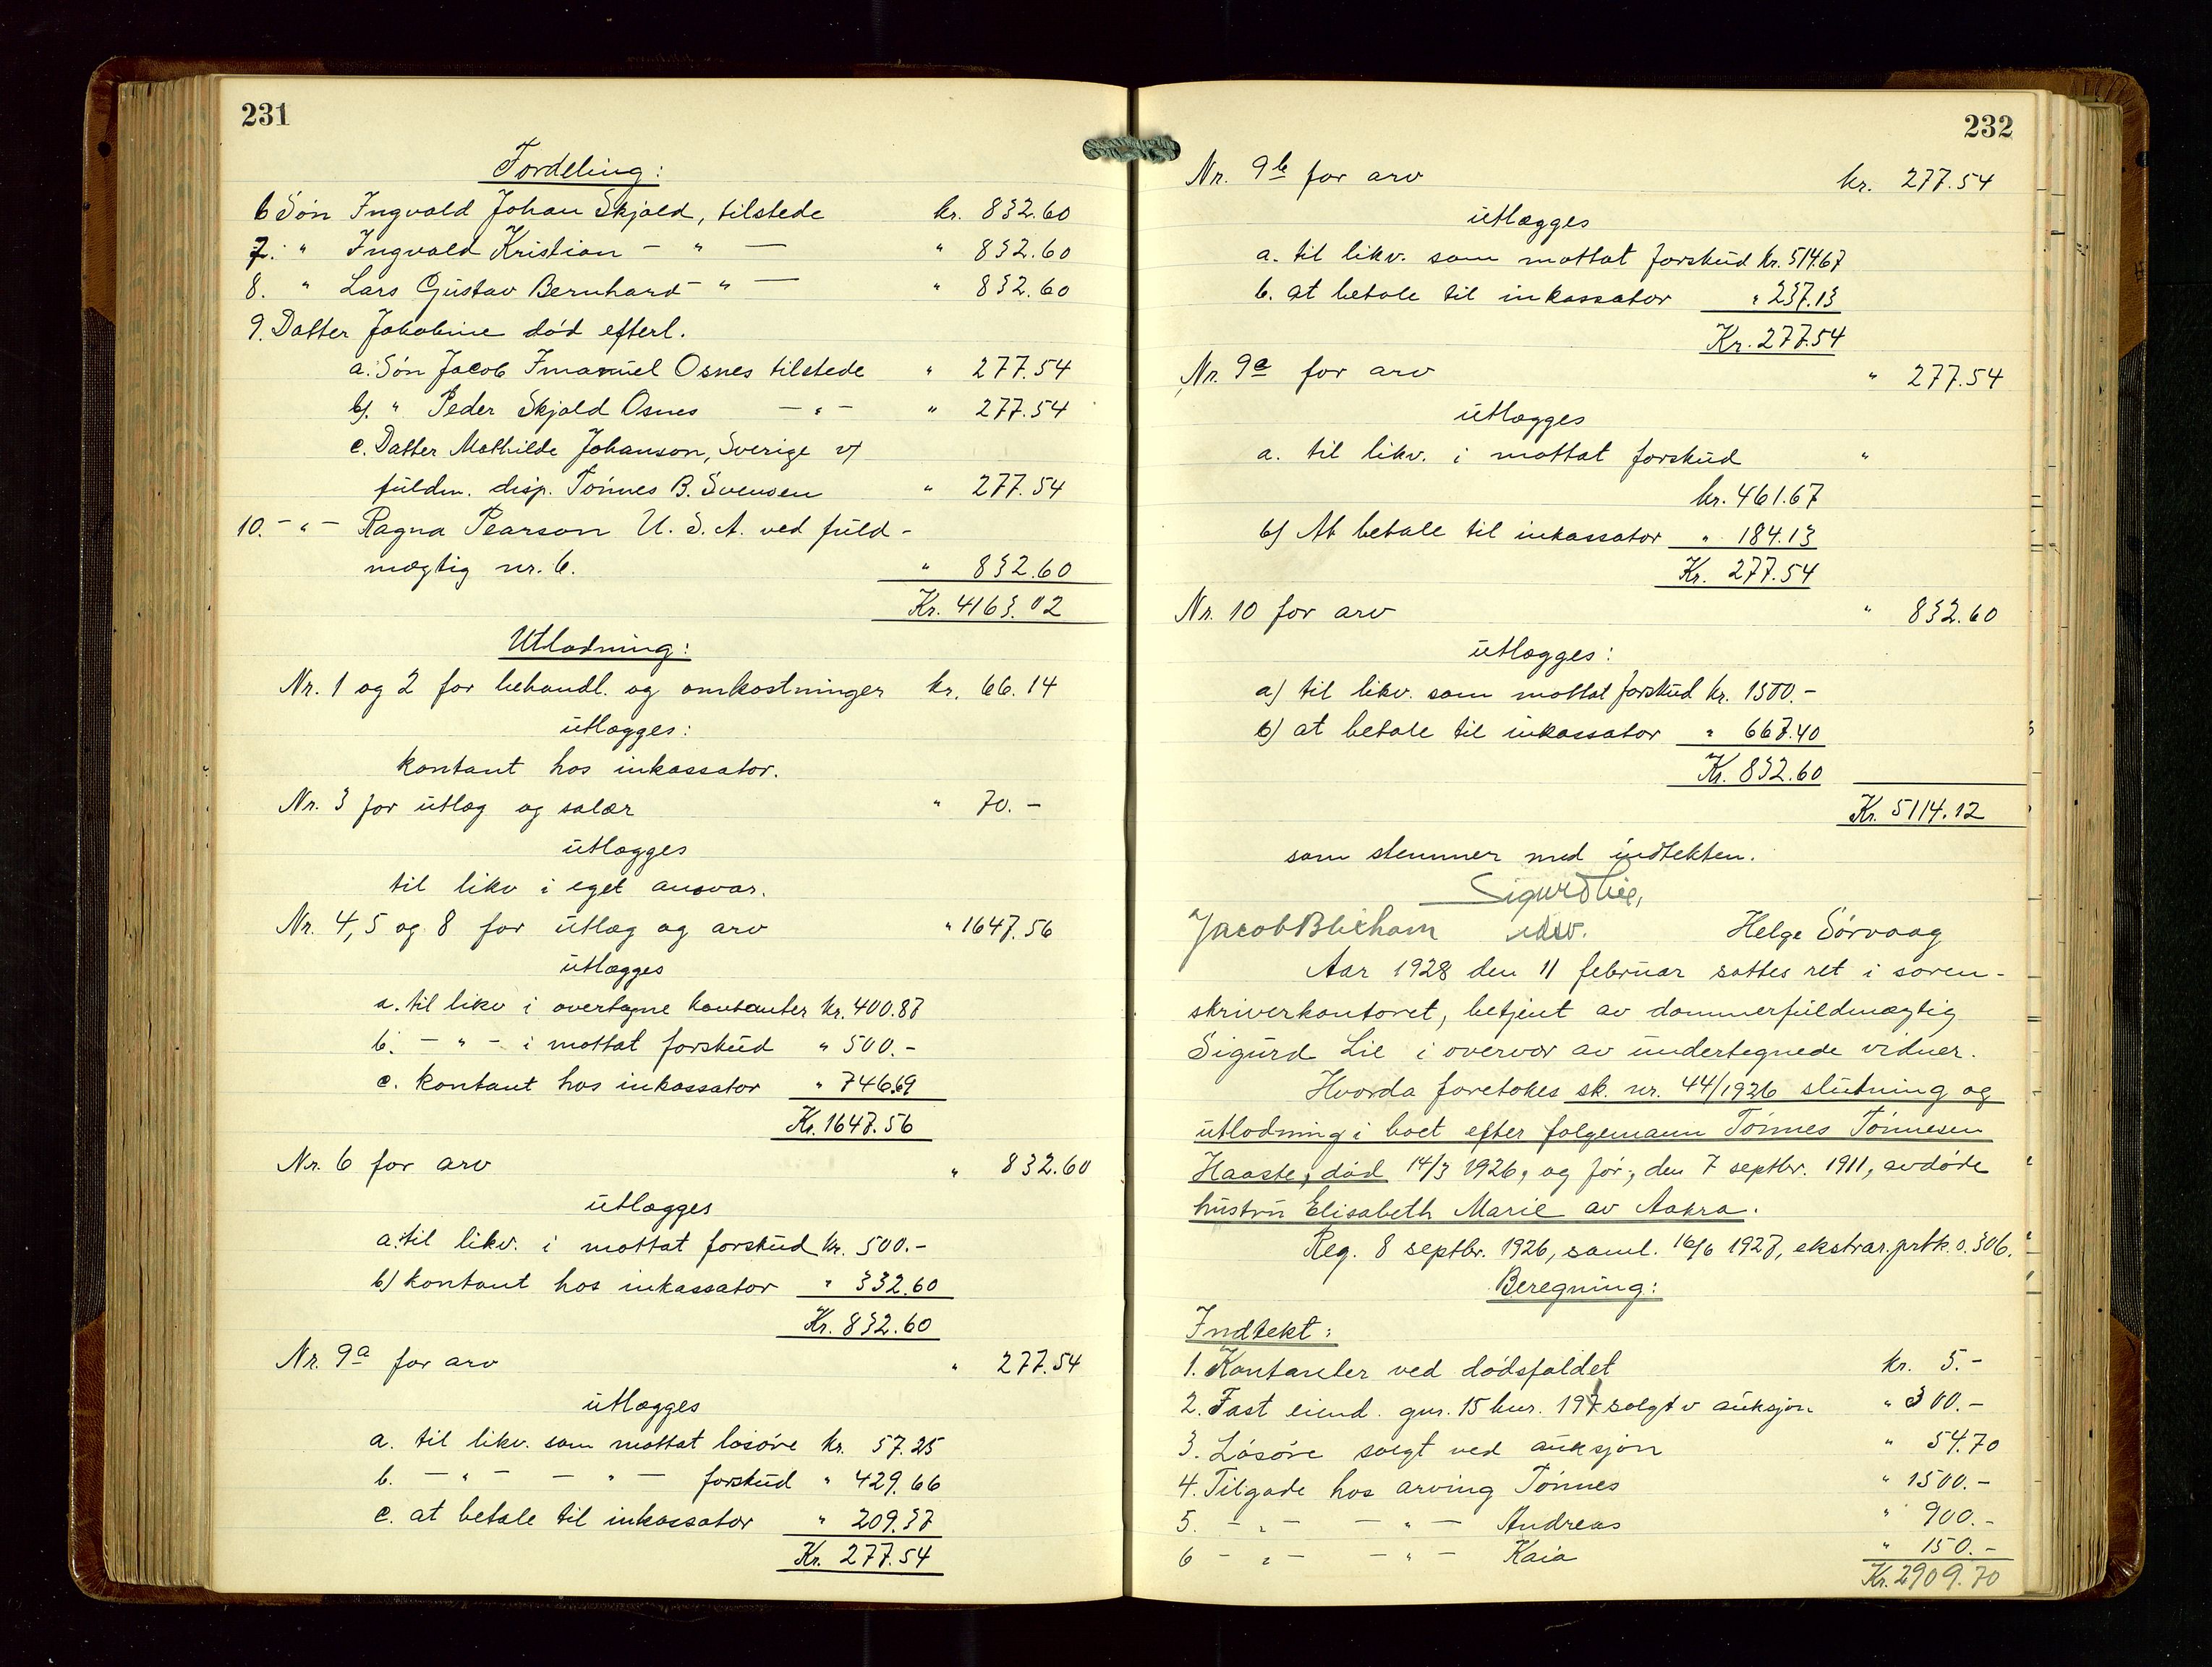 231
Fordeling:
6 Søn Ingvald Johan Skjold, tilstede kr. 832.60
7. " Ingvald Kristian - " - " 832.60
8. " Lars Gustav Bernhard - " - " 832.60
9. Datter Jakobine død efterl.
a. Søn Jacob Imanuel Osnes tilstede " 277.54
b). " Peder Skjold Osnes - " - " 277.54
c. Datter Mathilde Johanson, Sverige v/
fuldm. disp. Tönnes B. Svensen " 277.54
10. - " - Ragna Pearson U.S.A. ved fuld-
mægtig nr. 6. " 832.60
Kr. 4163.02
Utlodning:
Nr. 1 og 2 for behandl. og omkostninger kr. 66.14
utlægges:
kontant hos inkassator.
Nr. 3 for utlæg og salær " 70.-
utlægges
til likv i eget ansvar.
Nr. 4, 5 og 8 for utlæg og arv " 1647.56
utlægges
a. til likv i overtagne kontanter kr. 400.87
b. - " - i mottat forskud " 500.-
c. kontant hos inkassator " 746.69
Kr. 1647.56
Nr. 6 for arv " 832.60
utlægges
a. til likv. i mottat forskud kr. 500.-
b) kontant hos inkassator " 332.60
Kr. 832.60
Nr. 9a for arv " 277.54
utlægges
a. til likv. som mottat løsøre kr. 57.25
b. - " - - " - forskud " 429.66
c. at betale til inkassator " 209.37
Kr. 277.54
232
Nr. 9b for arv kr. 277.54
utlægges
a. til likv. som mottat forskud kr. 514.67
b. at betale til inkassator " 237.13
Kr. 277.54
Nr. 9c for arv " 277.54
utlægges
a. til likv. i mottat forskud "
kr. 461.67
b) At betale til inkassator " 184.13
Kr. 277.54
Nr. 10 for arv " 832.60
utlægges:
a) til likv. som mottat forskud kr. 1500.-
b) at betale til inkassator " 667.40
Kr. 832.60
Kr. 5114.12
som stemmer med indtekten.
Sigurd Lie,
Jacob Blixham Helge Sørvaag
Aar 1928 den 11 februar sattes ret i soren-
skriverkontoret, betjent av dommerfuldmægtig
Sigurd Lie i overvær av undertegnede vidner.
Hvorda foretokes sk. nr. 44/1926 slutning og
utlodning i boet efter følgemann Tönnes Tönnesen
Haaste, død 14/3 1926, og før, den 7 septbr. 1911, avdøde
hustru Elisabeth Marie av Aakra.
Reg. 8 septbr. 1926, saml. 16/6 1927, ekstrar. prtk. s. 306.
Beregning:
Indtekt:
1. Kontanter ved dødsfaldet kr. 5.-
2. Fast eiend. gnr. 15 bnr. 197 solgt v auksjon " 300.-
3. Løsøre solgt ved auksjon " 54.70
4. Tilgode hos arving Tönnes " 1500.-
5. - " - - " - Andreas " 900.-
6 - " - - " - Kaia " 150.-
Kr. 2909.70